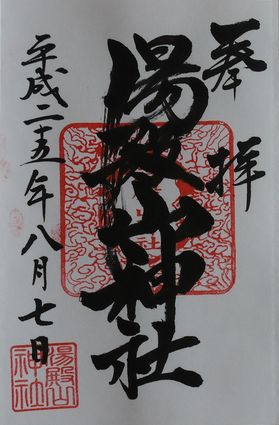 奉拝
湯殿山神社
平成二十五年八月七日
湯殿山
神社